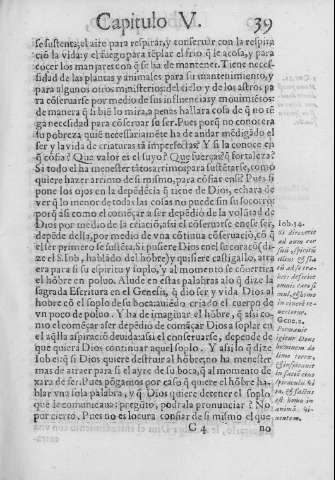 Capitulo V. 39
se sustenta; el aire para respirar, y conseruar con la respira
ció la vida: y el fuego para téplar el frio q̃ le acosa, y para
cocer los manjares con q̃ se ha de mantener. Tiene neces-
sidad de las plantas y animales para su mantenimiento, y
para algunos otros ministerios: del cielo y de los astros pa
ra cóseruarse por medio de sus influencias y mouimiétos:
de manera q̃ bié lo mira, apenas hallara cosa de q̃ no té
ga necessidad para cóseruar su ser. Pues porq̃ no conocera
su pobreza quié necessariaméte ha de andar médigado el
ser y la vida de criaturas tá imperfectas? Y si la conoce en
q̃ cófia? Que valor es el suyo? Que fuerças? q̃ fortaleza?
Si todo el ha menester tátos arrimos pára sustétarse, como
quiere hazer arrimo de si mismo, para cófiar en si? Pues si
pone los ojos en la depédécia q̃ tiene de Dios, echara de
ver q̃ lo menor de todas las cosas no puede sin su socorro:
porq̃ assi como el començar a ser depédio de la volútad de
Dios por medio de la creació, assi el cóseruarse en esse ser,
depéde della, por medio de vna cótinua cóseruació, có q̃
el ser primero se sustéta. Si pusiere Dios en el su coraçó (di-
ze el S. Iob, hablado del hóbre) y quisiere castigallo, atra
era para si su espiritu y soplo, y al momento se cóuertira
el hóbre en poluo. Alude en estas palabras a lo q̃ dize la
sagrada Escritura en el Genesis, q̃ dio ser y vida Dios al
hombre có el soplo de su boca: auiédo criado el cuerpo de
vn poco de poluo. Y ha de imaginar el hóbre, q̃ assi co-
mo el començar a ser depédio de començar Dios a soplar en
el aq̃lla aspiració de vida: assi el conseruarse, depende de
que quiera Dios continuar aquel soplo. Y assi dize
Iob el: q̃ si Dios quiere destruir al hóbre, no ha menester
mas de atraer para si el ayre de su boca, q̃ al momento de
xara de ser. Pues pógamos por caso q̃ quiere el hóbre ha-
blar vna sola palabra, y q̃ Dios quiere detener el soplo
que le comunicaua: pregúto, podrala pronunciar? No
por cierto. Pues no es locura confiar de si mismo el que
C 4 no
Iob. 34.
Si direxerit
ad eum cor
suũ, spiritũ
illius et fla
tũ ad se tra
het: deficiet
omnis caro si
mul, et homo
in cinerẽ re
uertetur.
Gene. 2.
Formauit
igitur Deus
hominem de
limo terræ,
et inspirauit
in faciẽ eius
spiraculũ vi
tæ, et factus
est homo in
animã vi-
uentem.